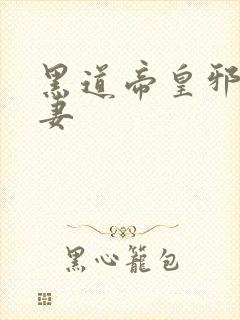 黑道帝皇邪
妻
黑心笼包